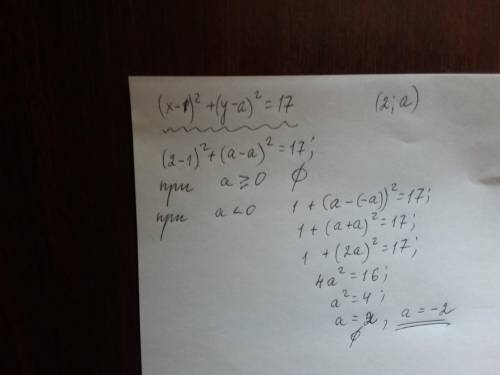 (x-1)² + (y-a)² = 17 (2; a)
(2-1)² + (a-a)² = 17;
при a ≥ 0 ∅
при a < 0 1 + (a-(-a))² = 17;
1 + (a+a)² = 17;
1 + (2a)² = 17;
4a² = 16;
a² = 4;
a = 2, a = -2
∅